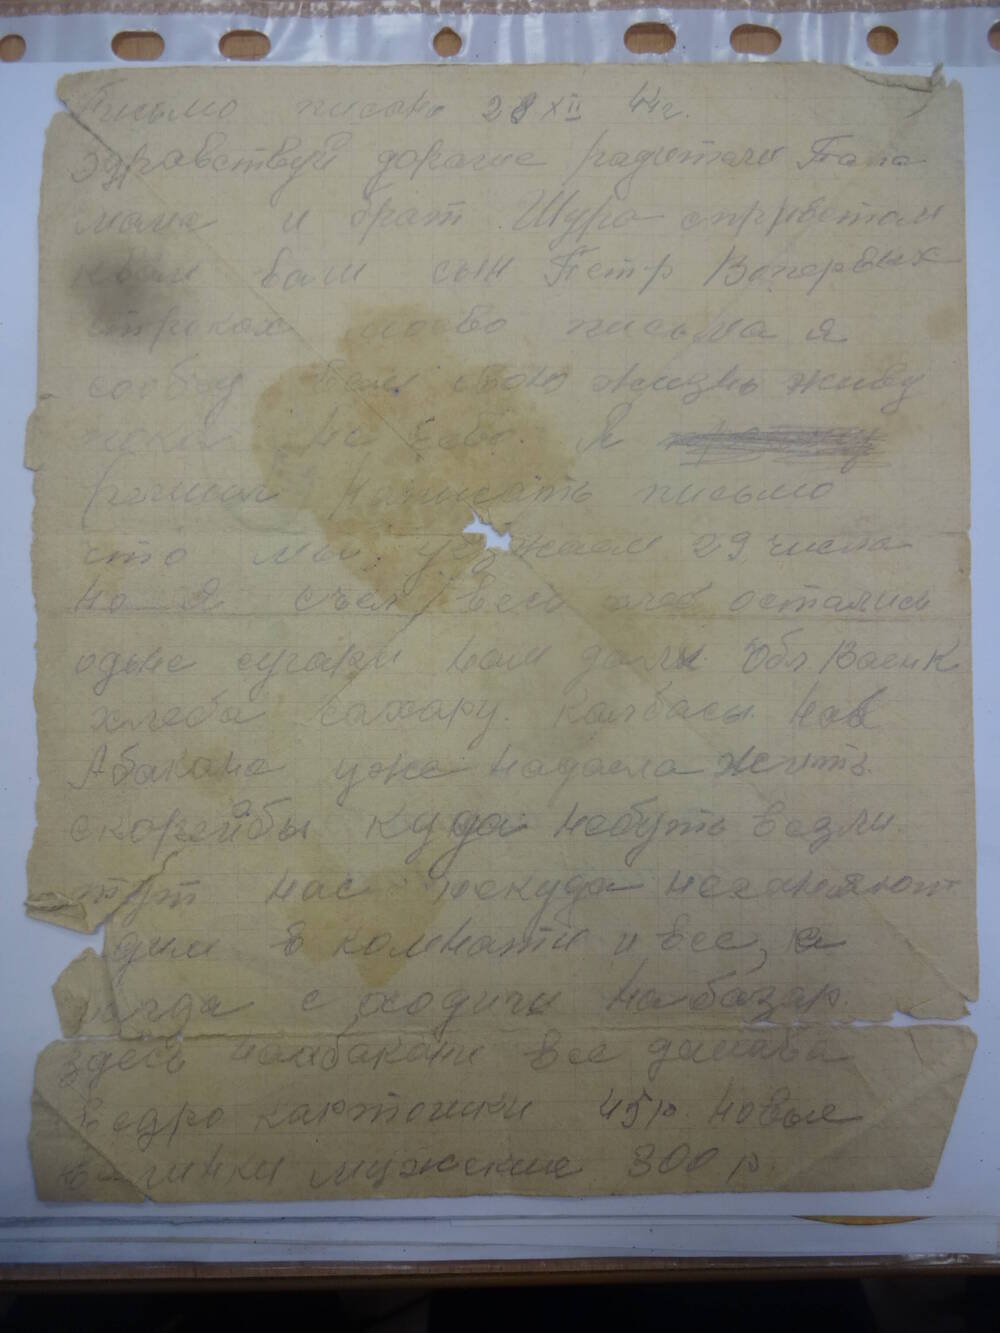 Письмо писано 28.XII 44г.
Здравствуй дорогие радители Папа
мама и брат Шура сприветом
к вам ваш сын Петр Вопервых
строках моево письма я
сообщу вам свою жизнь живу
пока не чево. Я
решил написать письмо
что мы уезжаем 29 числа
но я съел весь хлеб остались
одне сухари нам дали Обл Военк
хлеба сахару. калбасы. нов
Абакане уже надаела жить.
скорейбы куда небуть везли
тут нас некуда негоняют
дим в комнати и все, а
когда сходиш на базар.
здесь наабакани все дамава
ведро картошки 45р. новые
валинки мужские 300 р.